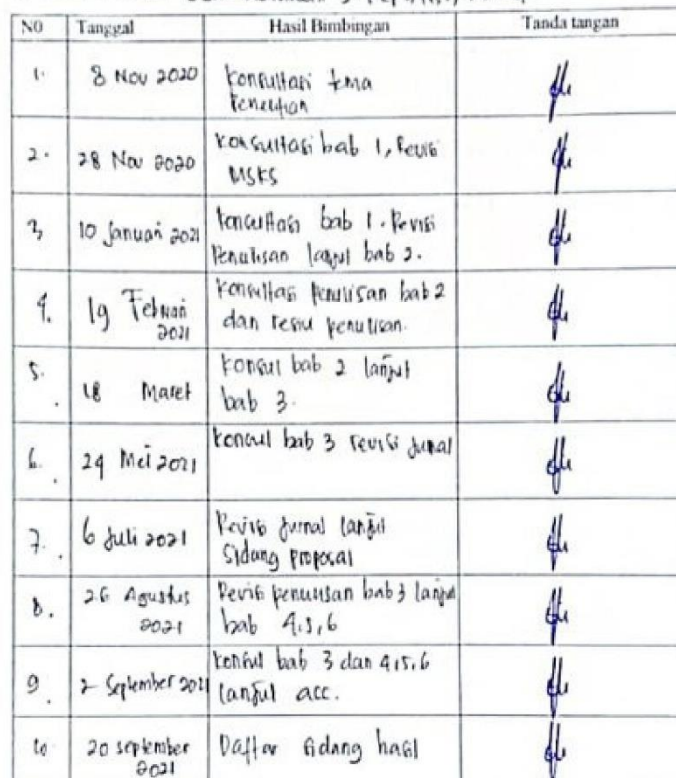 N0 Tanggal Hasil Bimbingan Tanda tangan
1. 8 Nov 2020 Konsultasi tema
Penelitian
2. 28 Nov 2020 Konsultasi bab 1, Revisi
MSKS
3. 10 Januari 2021 Konsultasi bab 1. Revisi
Penulisan lanjut bab 2.
4. 19 Februari
2021 Konsultasi penulisan bab 2
dan revisi penulisan.
5. 18 Maret Konsul bab 2 lanjut
bab 3.
6. 24 Mei 2021 Konsul bab 3 revisi jurnal
7. 6 Juli 2021 Revisi jurnal lanjut
Sidang proposal
8. 26 Agustus
2021 Revisi penulisan bab 3 lanjut
bab 4,5,6
9. 2 September 2021 Konsul bab 3 dan 4,5,6
lanjut acc.
10 20 september
2021 Daftar sidang hasil